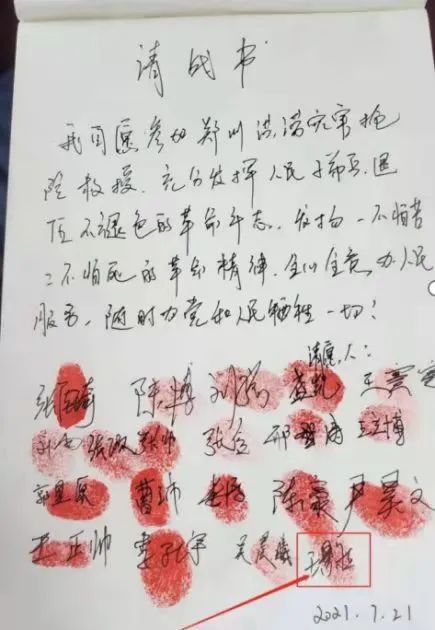 请战书
我自愿参加郑州洪涝灾害抢
险救援.充分发挥人民子弟兵退
伍不褪色的革命斗志.发扬一不怕苦
二不怕死的革命精神.全心全意为人民
服务.随时为党和人民牺牲一切!
请愿人:
张 陈博 孟凯 王
张政 张帅 张 邢 王博
郭 曹帅 李 陈豪 尹昊文
王正帅 李子宇 吴晨曦 王
2021.7.21